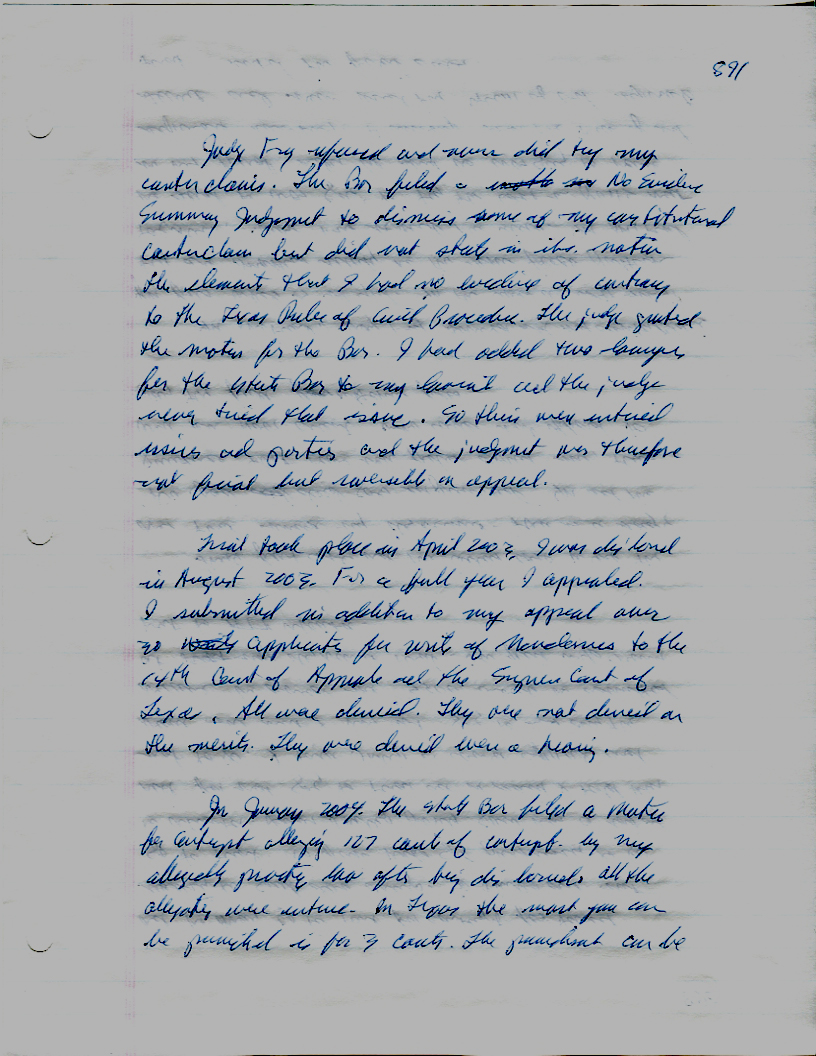 891
Judge Fry refused and never did try my
counterclaims. The Bar filed a No Evidence
Summary Judgment to dismiss some of my constitutional
counterclaim but did not state in its motion
the elements that I had no evidence of contrary
to the Texas Rules of Civil Procedure. The judge granted
the motion for the Bar. I had added two lawyers
for the State Bar to my lawsuit and the judge
never tried that issue. So there were untried
issues and parties and the judgment was therefore
not final but reversible on appeal.
Trial took place in April 2003. I was disbarred
in August 2003. For a full year I appealed.
I submitted in addition to my appeal over
30 applications for writs of Mandamus to the
14th Court of Appeals and the Supreme Court of
Texas. All were denied. They were not denied on
the merits. They were denied even a hearing.
In January 2004. The State Bar filed a Motion
for Contempt alleging 127 counts of contempt. by my
allegedly practicing law after being disbarred. All the
allegations were untrue. In Texas the most you can
be punished is for 3 counts. The punishment can be